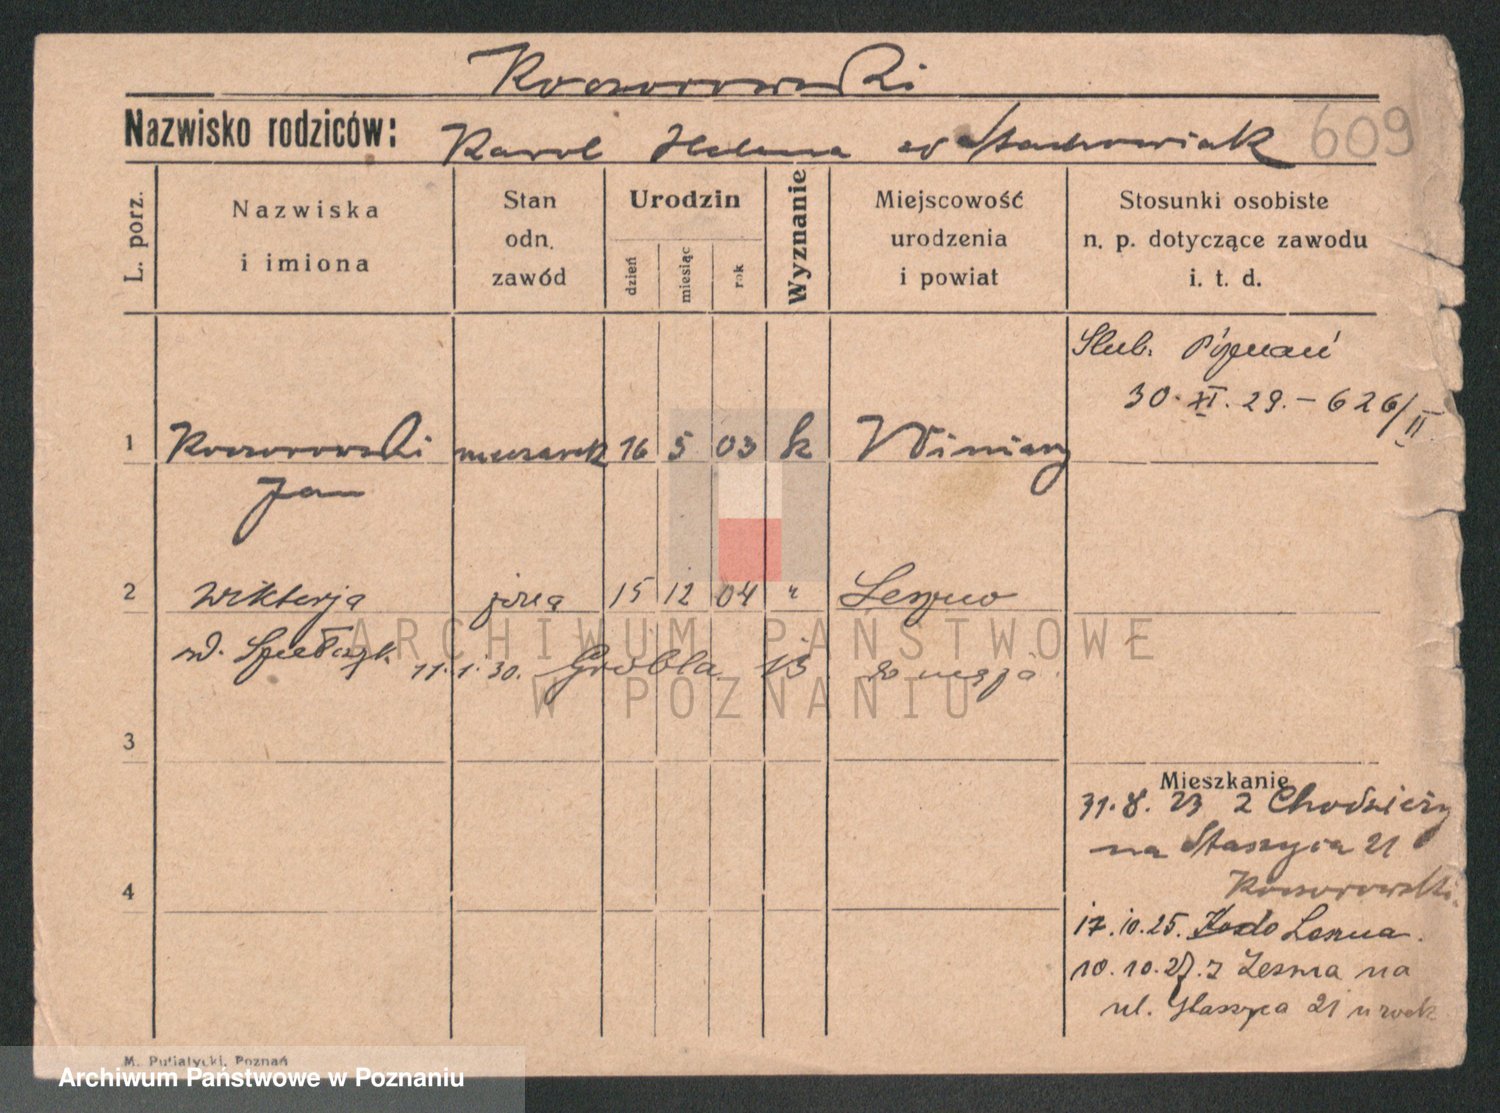 Koczorowski
Nazwisko rodziców: Karol Helena zd Stachowiak 609
L. porz.
Nazwiska
i imiona
Stan
odn.
zawód
Urodzin
dzień
miesiąc
rok
Wyznanie
Miejscowość
urodzenia
i powiat
Stosunki osobiste
n. p. dotyczące zawodu
i. t. d.
Ślub. Poznań
30. XI. 29. – 626/II
1 Koczorowski 16 5 03 k Winiary
Jan
2 Wiktorja żona 15 12 04 " Leszno
zd.
11. 1. 30. Grobla 13
3
Mieszkanie
31. 8. 23 z Chodzieży
na Staszyca 21
Koczorowski.
4
17. 10. 25. do Leszna.
10. 10. 27. z Leszna na
ul. Staszyca 21
M. Putiatycki, Poznań
ARCHIWUM PAŃSTWOWE
W POZNANIU
Archiwum Państwowe w Poznaniu